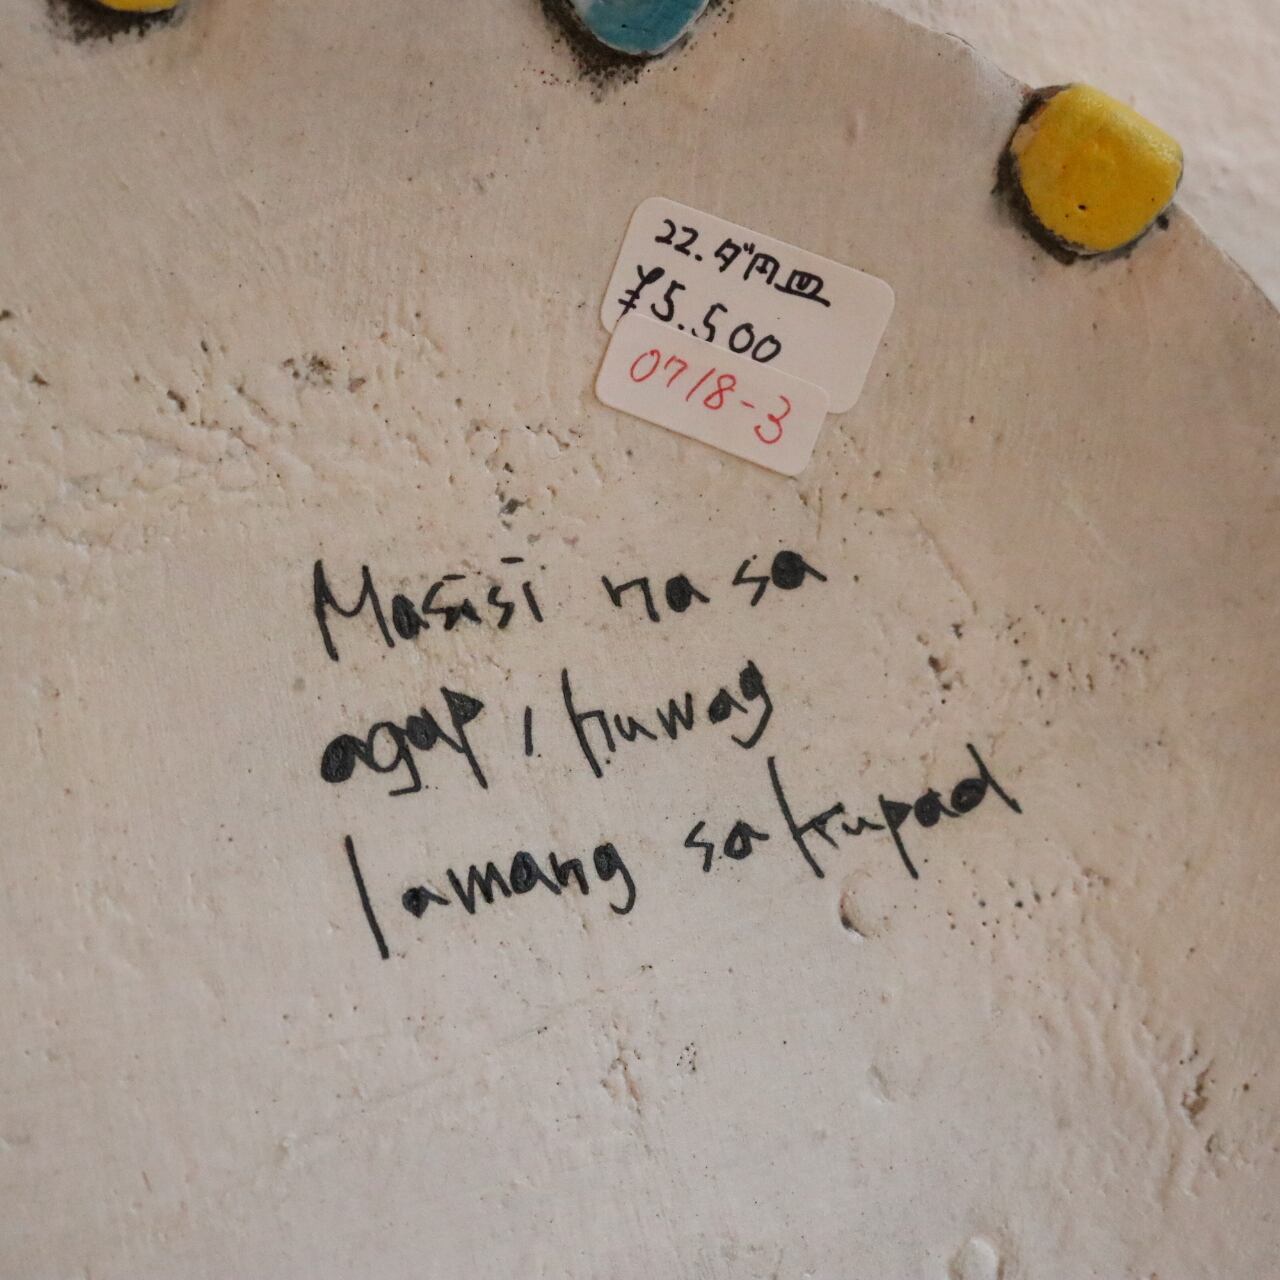 22.ダ円皿
¥5.500
0718-3
Masisi na sa
agap, huwag
lamang sa kupad